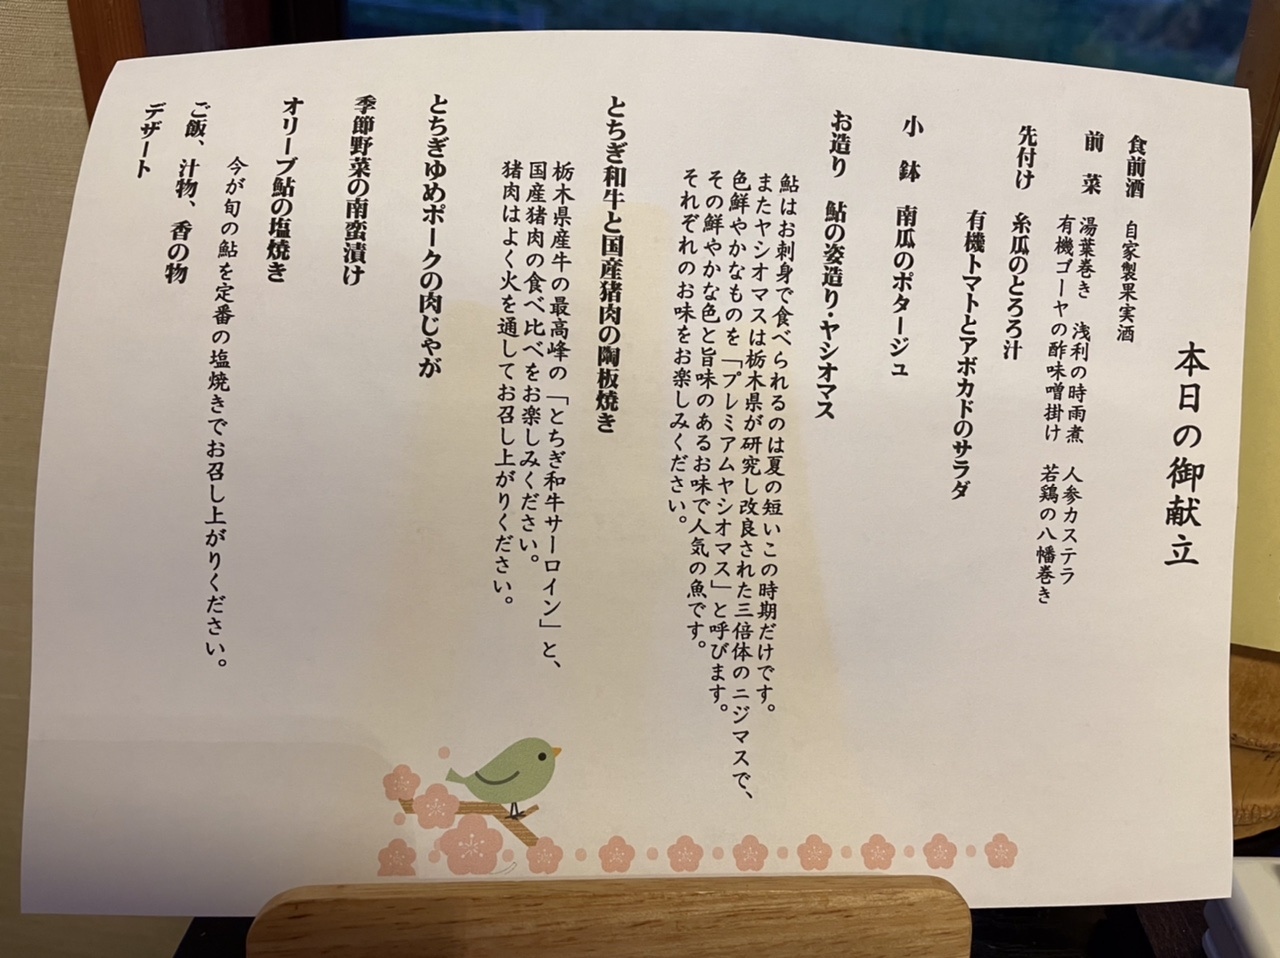 本日の御献立
食前酒　自家製果実酒
前　菜　湯葉巻き　浅利の時雨煮　人参カステラ
有機ゴーヤの酢味噌掛け　若鶏の八幡巻き
先付け　糸瓜のとろろ汁
有機トマトとアボカドのサラダ
小　鉢　南瓜のポタージュ
お造り　鮎の姿造り・ヤシオマス
鮎はお刺身で食べられるのは夏の短いこの時期だけです。
またヤシオマスは栃木県が研究し改良された三倍体のニジマスで、
色鮮やかなものを「プレミアムヤシオマス」と呼びます。
その鮮やかな色と旨味のあるお味で人気の魚です。
それぞれのお味をお楽しみください。
とちぎ和牛と国産猪肉の陶板焼き
栃木県産牛の最高峰の「とちぎ和牛サーロイン」と、
国産猪肉の食べ比べをお楽しみください。
猪肉はよく火を通してお召し上がりください。
とちぎゆめポークの肉じゃが
季節野菜の南蛮漬け
オリーブ鮎の塩焼き
今が旬の鮎を定番の塩焼きでお召し上がりください。
ご飯、汁物、香の物
デザート